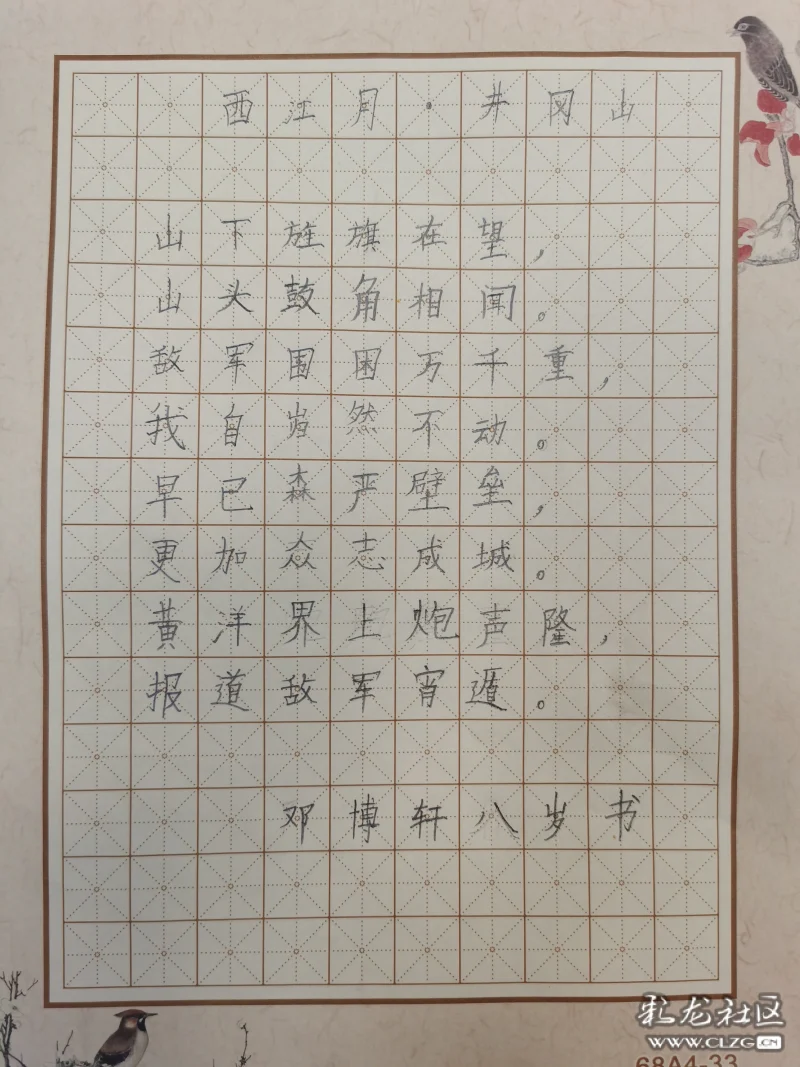 西江月·井冈山
山下旌旗在望，
山头鼓角相闻。
敌军围困万千重，
我自岿然不动。
早已森严壁垒，
更加众志成城。
黄洋界上炮声隆，
报道敌军宵遁。
邓博轩八岁书
彩龙社区
www.CLZG.CN
68A4-33